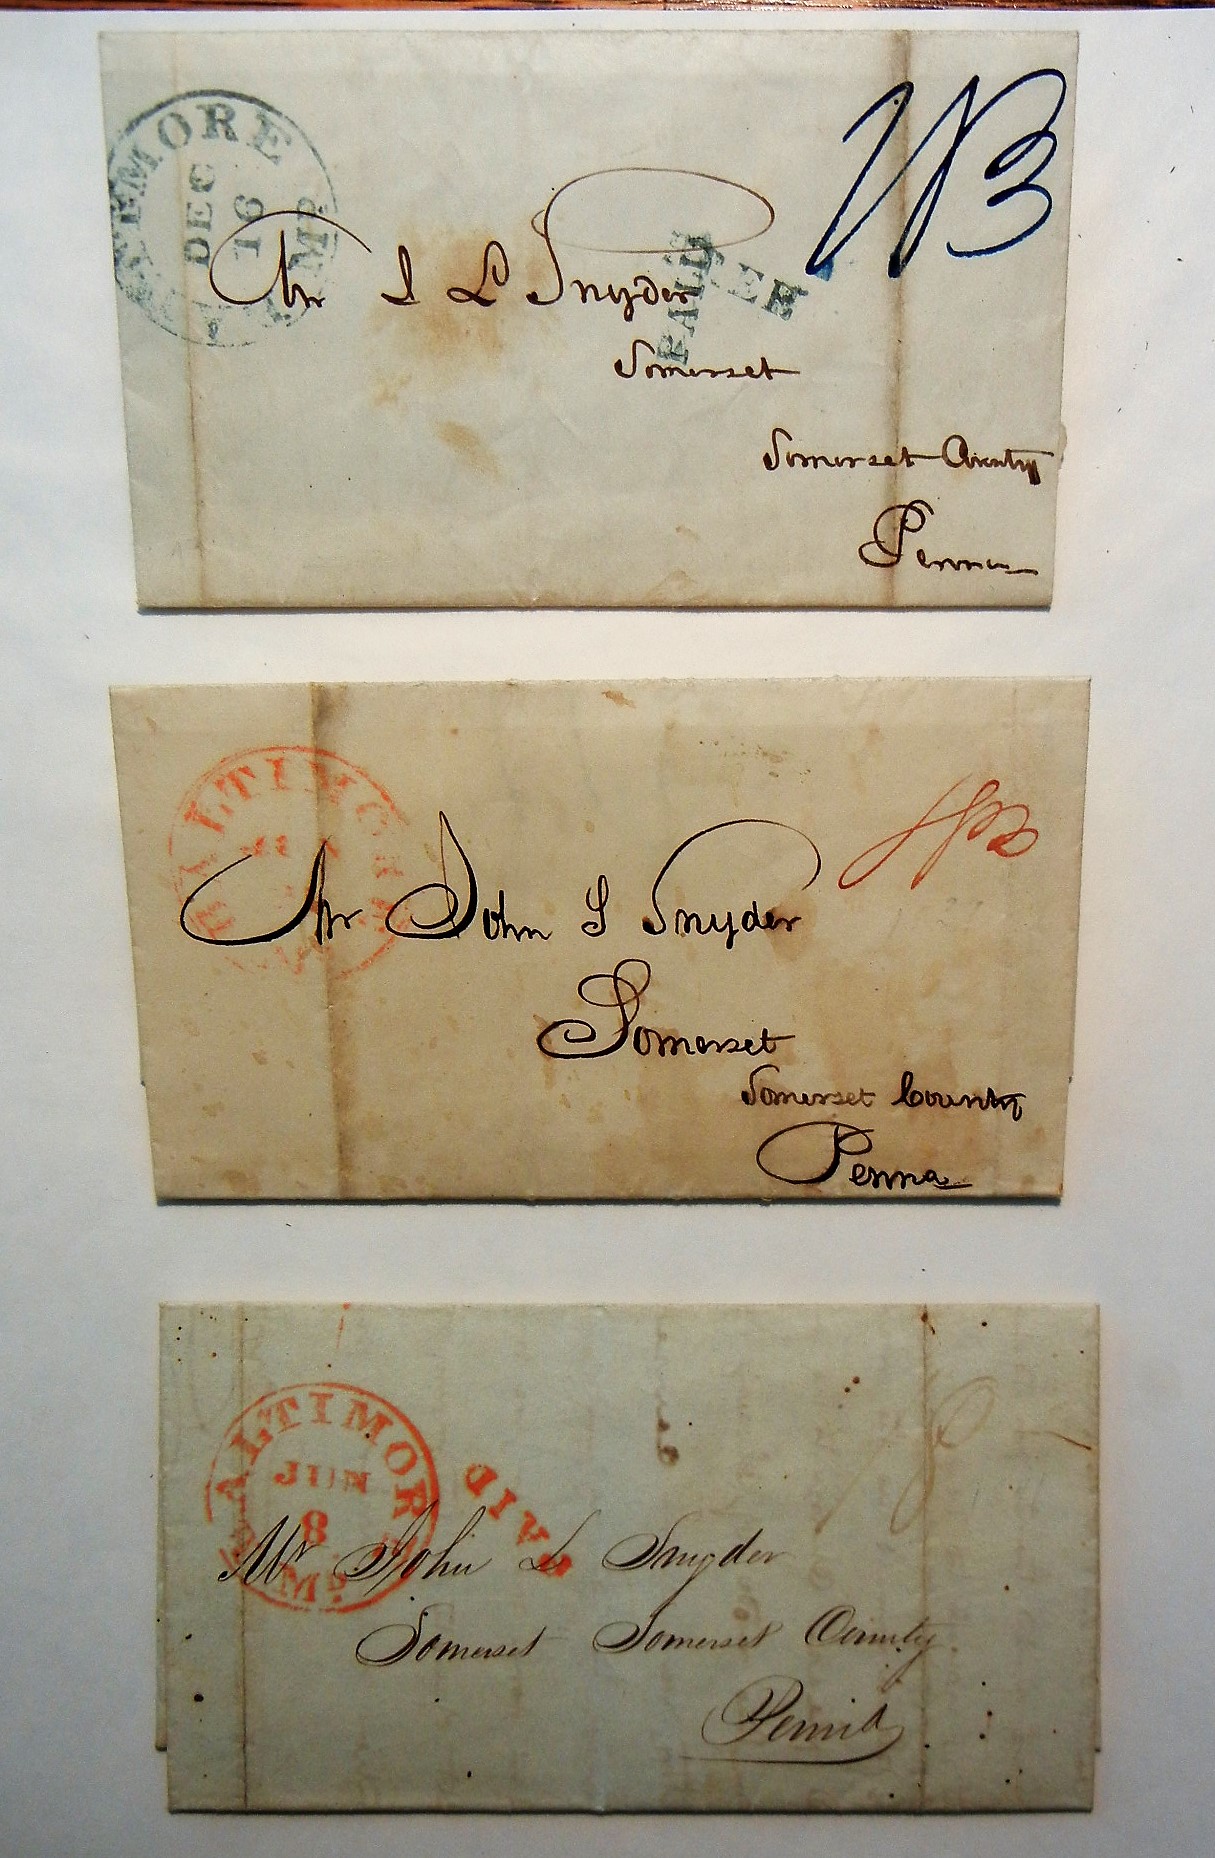 BALTIMORE
DEC
16
MD.
Mr J L Snyder
PAID
Somerset
Somerset County
Penna
BALTIMORE
MD.
Mr John L Snyder
Somerset
Somerset County
Penna
BALTIMORE
JUN
8
Md.
PAID
Mr John L Snyder
Somerset Somerset County
Penna